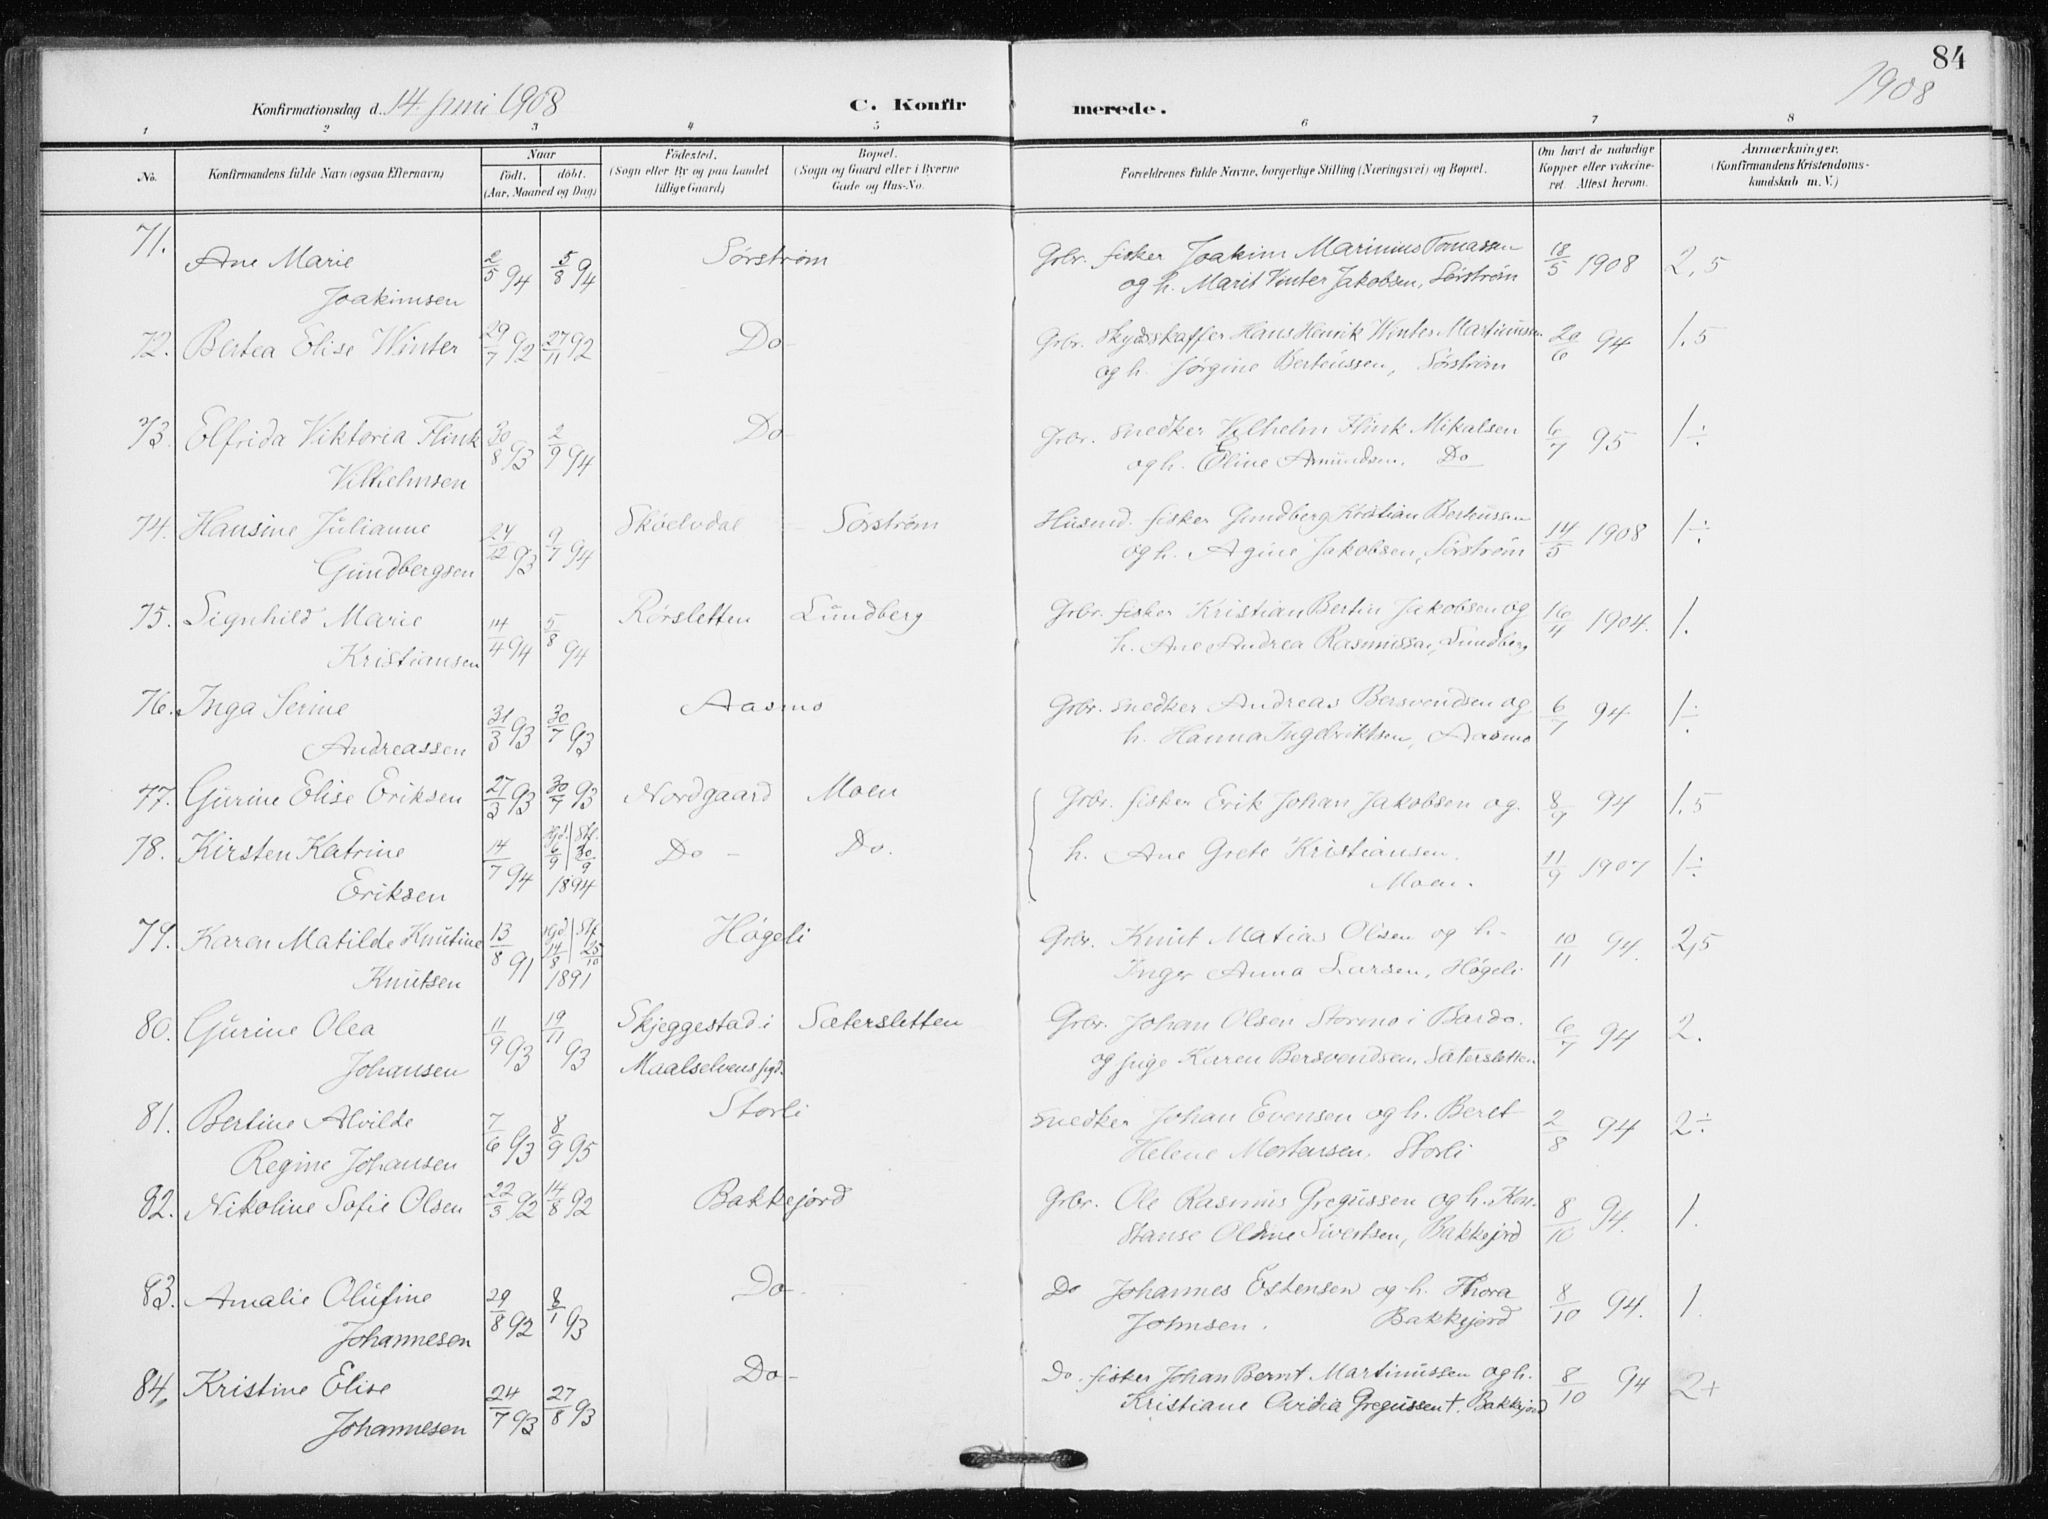 84
1908
Konfirmationsdag d. 14. juni 1908 C. Konfir merede.
1 2 3 4 5 6 7 8
No. Konfirmandens fulde Navn (ogsaa Efternavn) Naar födt. döbt. (Aar, Maaned og Dag) Födested. (Sogn eller By og paa Landet tillige Gaard) Bopæl. (Sogn og Gaard eller i Byerne Gade og Hus-No. Forældrenes fulde Navne, borgerlige Stilling (Næringsvei) og Bopæl. Om havt de naturlige Kopper eller vakcineret. Attest herom. Anmærkninger. (Konfirmandens Kristendomskundskab m. V.)
71. Ane Marie 2/5 94 5/8 94 Sørstrøm Grbr. fisker Joakim Marinius Tomassen 18/5 1908 2,5
Joakimsen og h. Marit Vinter Jakobsen, Sørstrøm
72. Bertea Elise Winter 29/7 92 27/11 92 Do - Grbr. skydsskaffer Hans Henrik Winter Martinussen 20/6 94 1.5
og h. Jørgine Berteussen, Sørstrøm
73. Elfrida Viktoria Flink 30/8 93 2/9 94 Do - Grbr. snedker Vilhelm Flink Mikalsen 6/7 95 1÷
Vilhelmsen og h. Eline Amundsen. Do
74. Hansine Julianne 24/12 93 9/7 94 Skøelvdal Sørstrøm Husmd. fisker Gundberg Kristian Berteussen 14/5 1908 1÷
Gundbergsen og h. Agine Jakobsen, Sørstrøm
75. Signhild Marie 14/4 94 5/8 94 Rørsletten Lundberg Grbr. fisker Kristian Bertin Jakobsen og 16/4 1904. 1.
Kristiansen h. Ane Andrea Rasmussen, Lundberg
76. Inga Serine 31/3 93 30/7 93 Aasmo Grbr. snedker Andreas Bersvendsen og 6/7 94 1÷
Andreassen h. Hanna Ingebriktsen, Aasmo
77. Gurine Elise Eriksen 27/3 93 30/7 93 Nordgaard Moen Grbr. fisker Erik Johan Jakobsen og 8/9 94 1.5
78. Kirsten Katrine 14/7 94 Hjd. 6/9 Stf. 30/9 1894 Do - Do. h. Ane Grete Kristiansen. 11/9 1907 1÷
Eriksen Moen.
79. Karen Matilde Knutine 13/8 91 Hjd 14/8 Stf. 25/10 1891 Høgeli Grbr. Knut Matias Olsen og h. 10/11 94. 2,5
Knutsen Inger Anna Larsen, Høgeli
80. Gurine Olea 11/9 93 19/11 93 Skjeggestad i Sætersletten Grbr. Johan Olsen Stormo i Bardo. 6/7 94 2.
Johansen Maalselvens sgd. og pige Karen Bersvendsen, Sætersletten
81. Bertine Alvilde 7/6 93 8/9 95 Storli Snedker Johan Evensen og h. Beret 2/8 94 2÷
Regine Johansen Helene Mortensen, Storli
82. Nikoline Sofie Olsen 22/3 92 14/8 92 Bakkejord Grbr. Ole Rasmus Gregussen og h. Kon- 8/10 94. 1.
stanse Oldine Sivertsen, Bakkejord
83. Amalie Olufine 29/8 92 8/1 93 Do - Do Johannes Estensen og h. Thora 8/10 94. 1.
Johannesen Johnsen. Bakkejord
84. Kristine Elise 24/7 93 27/8 93 Do - Do. fisker Johan Bernt Martinussen og h. 8/10 94 2+
Johannesen Kristiane Gregussen +. Bakkejord